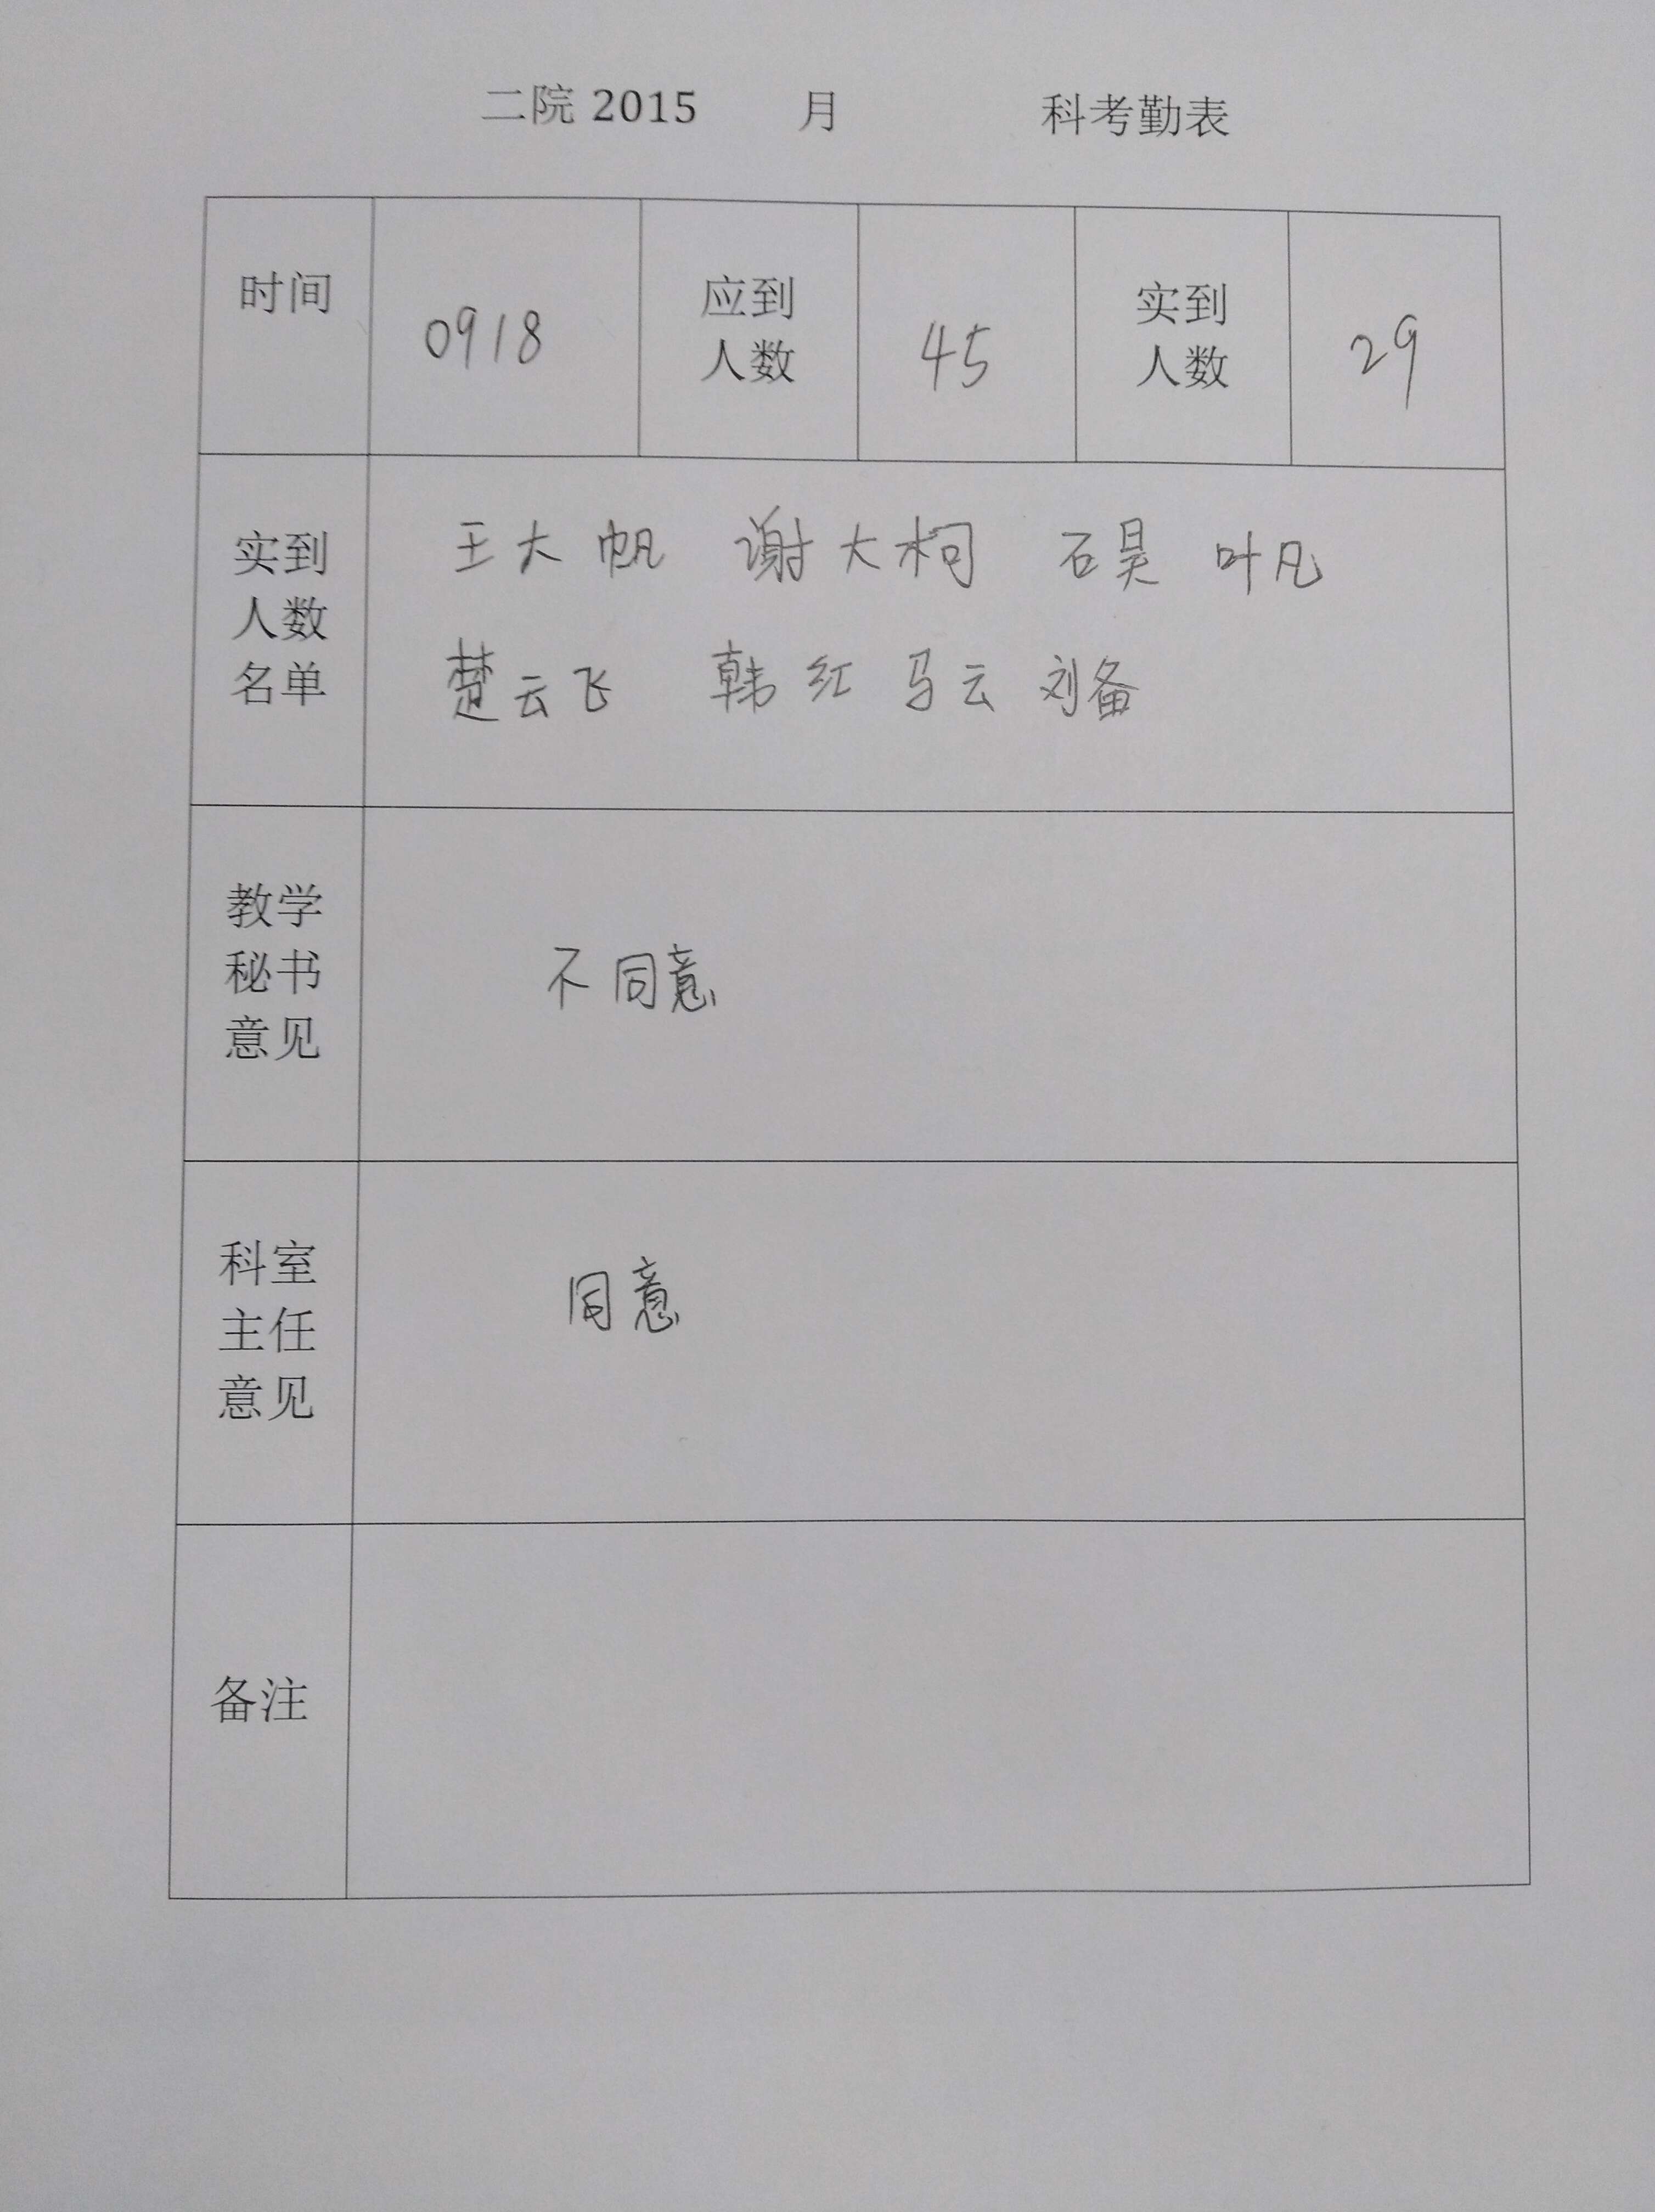 二院 2015 月 科考勤表
时间 0918 应到人数 45 实到人数 29
实到人数名单 王大帆 谢大柯 石昊 叶凡
楚云飞 韩红 马云 刘备
教学秘书意见 不同意
科室主任意见 同意
备注